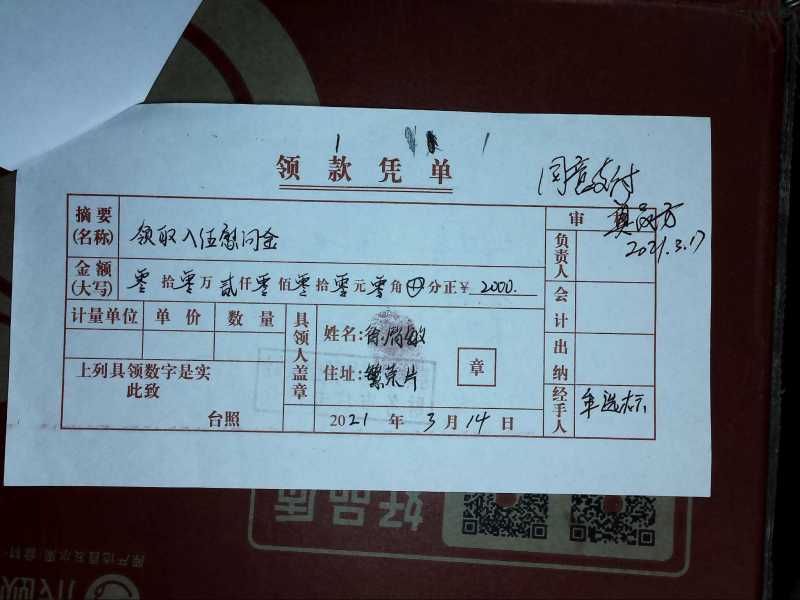 领款凭单
同意支付
2021.3.17
摘要(名称) 领取入伍慰问金
审
金额(大写) 零拾零万贰仟零佰零拾零元零角 分正¥2000.
负责人
计量单位 单价 数量
具领人盖章
姓名:
会计
上列具领数字是实
住址:繁荣片
章
出纳
此致
台照
2021年3月14日
经手人 牟选标
好品质